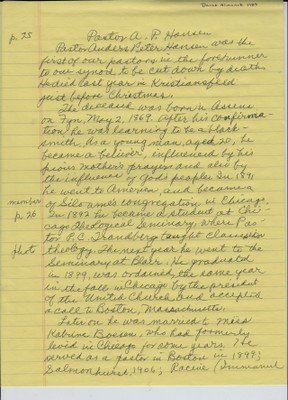 Dansk Almanak 1927
p. 25
Pastor A. P. Hansen
Pastor Anders Peter Hansen was the
first of our pastors in the forerunner
to our synod to be cut down by death.
He died last year in Kristiansfeld
just before Christmas.
The deceased was born in Assens
on Fyn, May 2, 1869. After his confirma-
tion he was learning to be a black-
smith. As a young man, aged 20, he
became a believer, influenced by his
pious mother's prayers and also by
the influence of God's people. In 1891
he went to America, and became a
member of Siloams congregation in Chicago.
p. 26 In 1892 he became a student at Chi-
cago Theological Seminary, where Pas-
tor P. C. Trandberg taught classes in
photo theology. The next year he went to the
Seminary at Blair. He graduated
in 1899, was ordained, the same year
in the fall in Chicago by the president
of the United Church, and accepted
a call to Boston, Massachusetts.
Later on he was married to Miss
Katrine Boesen, who had formerly
lived in Chicago for some years. He
served as a pastor in Boston in 1899;
Salmonhurst, 1906; Racine (Immanuel